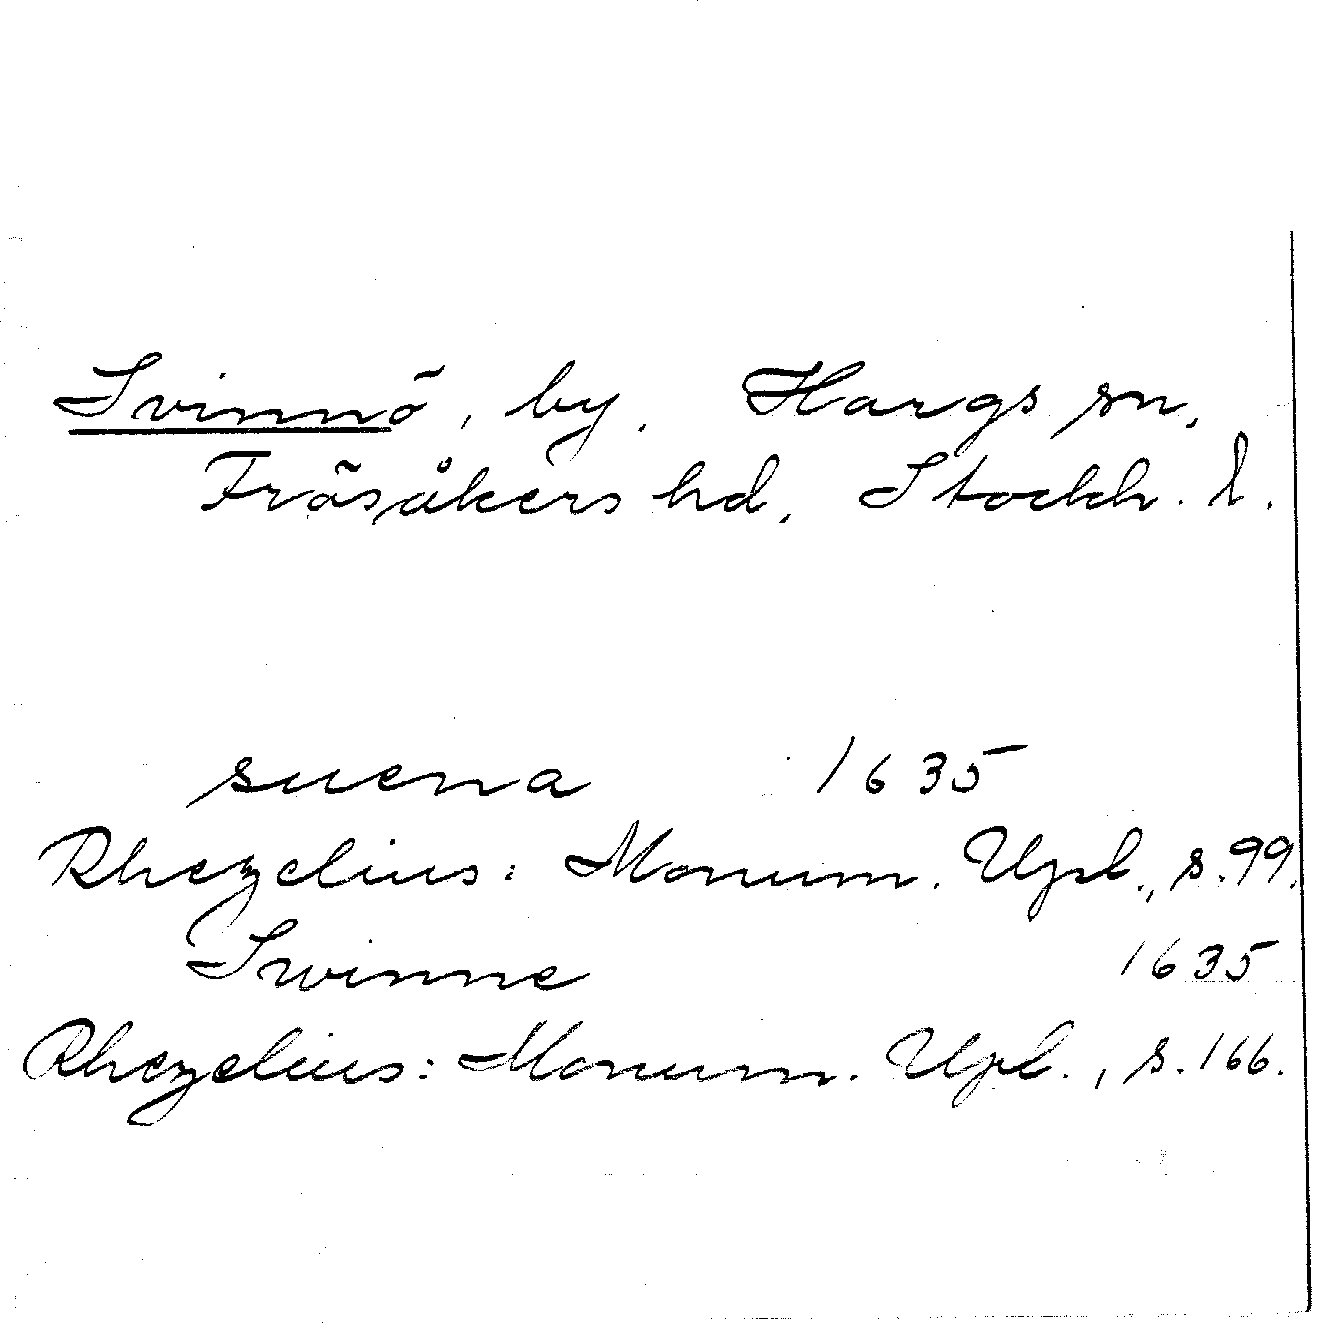 Svinnö, by, Hargs sn,
Frösåkers hd, Stockh. l.
suena 1635
Rhezelius: Monum. Upl., s. 99.
Swinne 1635
Rhezelius: Monum. Upl., s. 166.